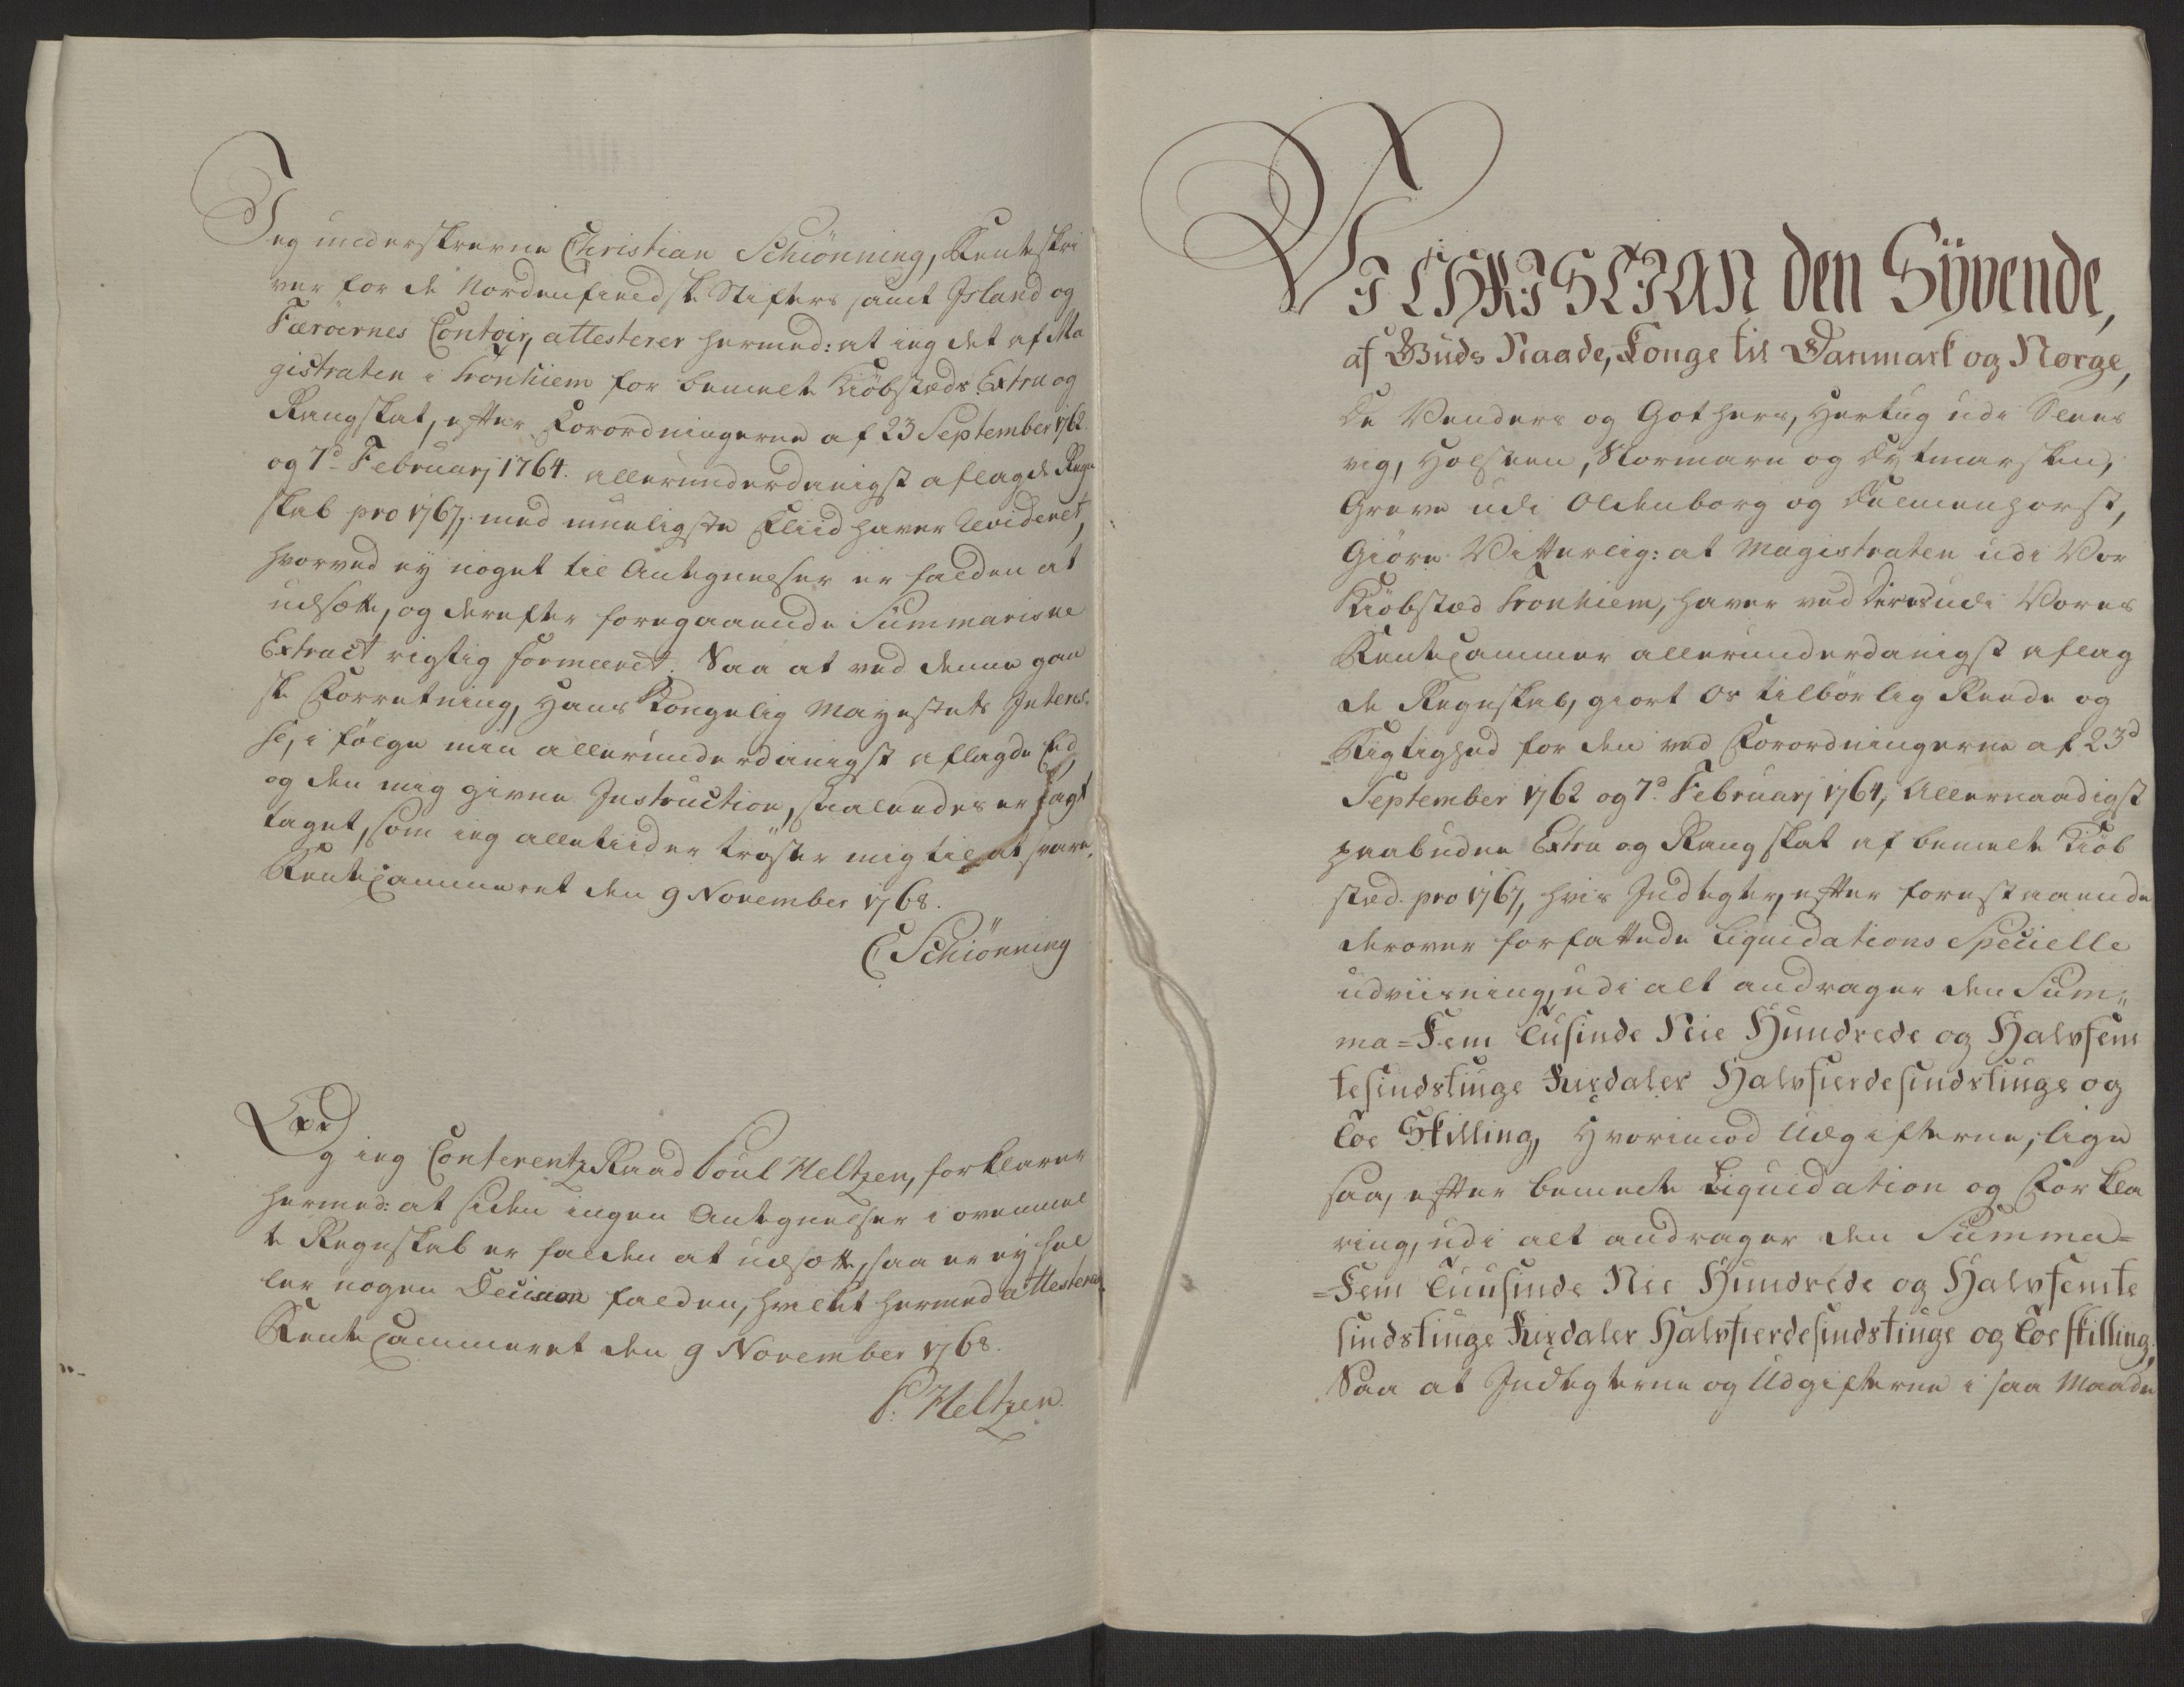 Jeg underskrevne Christian Schiönning, Renteskri
ver for de Nordenfieldske Stifters samt Island og
Færöernes Contoir, attesterer hermed: at ieg det af Ma
gistraten i Tronhiem for bemelte Kiöbstæds Extra og
Rangskat, efter Forordningerne af 23 September 1762.
og 7d Februarj 1764. allerunderdanigst aflagde Regn
skab pro 1767, med mueligste Fliid haver Revideret,
hvorved ey noget til Antegnelser er falden at
udsætte, og derefter foregaaende Summariske
Extract rigtig formeeret. Saa at ved denne gan
ske Forretning, Hans Kongelig Mayestets Interes
se, i fölge min allerunderdanigst aflagde Eed,
og den mig givne Instruction, saaledes er iagt
taget, som ieg alletiider tröster mig til at svare.
RenteCammeret den 9 November 1768.
C Schiönning
Og ieg ConferentzRaad Poul Heltzen, forklarer
hermed: at siden ingen Antegnelser i ovenmel
te Regnskab er falden at udsætte, saa er ey hel
ler nogen Decision falden, hvilket hermed attesteres.
RenteCammeret den 9 November 1768.
P. Heltzen.
VI CHRISTIAN den Syvende,
af Guds Naade, Konge til Danmark og Norge,
De Venders og Gothers, Hertug udi Slees
vig, Holsteen, Stormarn og Dytmarsken,
Greve udi Oldenborg og Delmenhorst,
Giöre Vitterlig: at Magistraten udi Vor
Kiöbstæd Tronhiem, haver ved Deres udi Vores
RenteCammer allerunderdanigst aflag
de Regnskab, giort Os tilbörlig Reede og
Rigtighed for den ved Forordningerne af 23d
September 1762 og 7d Februarj 1764, Allernaadigst
paabudne Extra og Rang skat af bemelte Kiöb
stæd pro 1767, hvis Indtegter, efter forestaaende
derover forfattede Liquidations Specielle
udviisning, udi alt andrager den Sum„
ma = Fem Tusinde Nie Hundrede og Halvfem
tesindstiuge Rixdaler Halvfierdesindstiuge og
Toe Skilling, Hvorimod Udgifterne, lige
saa, efter bemelte Liquidation og Forkla
ring, udi alt andrager den Summa =
= Fem Tuusinde Nie Hundrede og Halvfemte
sindstiuge Rixdaler Halvfierdesindstiuge og Toe skilling,
Saa at Indtegterne og Udgifterne i saa Maade